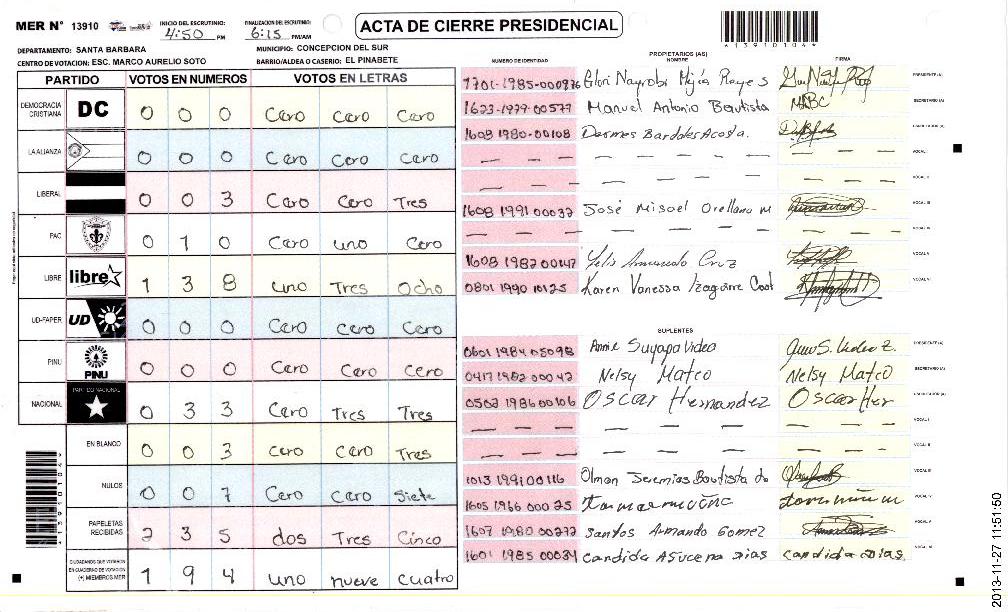 MER N° 13910
INICIO DEL ESCRUTINIO: 4:50 PM
FINALIZACION DEL ESCRUTINIO: 6:15 PM/AM
ACTA DE CIERRE PRESIDENCIAL
*13910104*
DEPARTAMENTO: SANTA BARBARA
MUNICIPIO: CONCEPCION DEL SUR
CENTRO DE VOTACION: ESC. MARCO AURELIO SOTO
BARRIO/ALDEA O CASERIO: EL PINABETE
PARTIDO VOTOS EN NUMEROS VOTOS EN LETRAS
DEMOCRACIA CRISTIANA DC 0 0 0 Cero Cero Cero
LA ALIANZA 0 0 0 Cero Cero Cero
LIBERAL 0 0 3 Cero Cero Tres
PAC 0 1 0 Cero uno Cero
LIBRE libre 1 3 8 uno Tres Ocho
UD-FAPER UD 0 0 0 Cero Cero Cero
PINU PINU 0 0 0 Cero Cero Cero
NACIONAL PARTIDO NACIONAL 0 3 3 Cero Tres Tres
EN BLANCO 0 0 3 Cero Cero Tres
NULOS 0 0 7 Cero Cero Siete
PAPELETAS RECIBIDAS 2 3 5 dos Tres Cinco
CIUDADANOS QUE VOTARON EN CUADERNO DE VOTACION (+) MIEMBROS MER 1 9 4 uno nueve cuatro
*13910104*
PROPIETARIOS (AS)
NUMERO DE IDENTIDAD NOMBRE FIRMA
1701-1985-000976 Glori Nayrobi Mejía Reyes PRESIDENTE (A)
1623-1979-00577 Manuel Antonio Bautista SECRETARIO (A)
1608 1980-00108 Darmes Bardales Acosta.
— — — VOCAL I
— — — VOCAL II
1608 1991 00037 José Misael Orellana M VOCAL III
— — — VOCAL IV
1608 1982 00147 Amundo Cruz VOCAL V
0801 1990 10125 Karen Vanessa Izaguirre VOCAL VI
SUPLENTES
NOMBRE
0601 1984 05098 Annie Suyapa Video PRESIDENTE (A)
0417 1982 00042 Nelsy Mateo Nelsy Mateo SECRETARIO (A)
0502 1986 00106 Oscar Hernandez Oscar Her
— — — VOCAL I
— — — VOCAL II
1013 1991 00116 Olman Jeremias Bautista VOCAL III
1605 1966 000 25 VOCAL IV
1607 1980 00272 Santos Armando Gomez VOCAL V
1601 1985 00034 Candida Asucena Dias candida Dias. VOCAL VI
2013-11-27 11:51:50